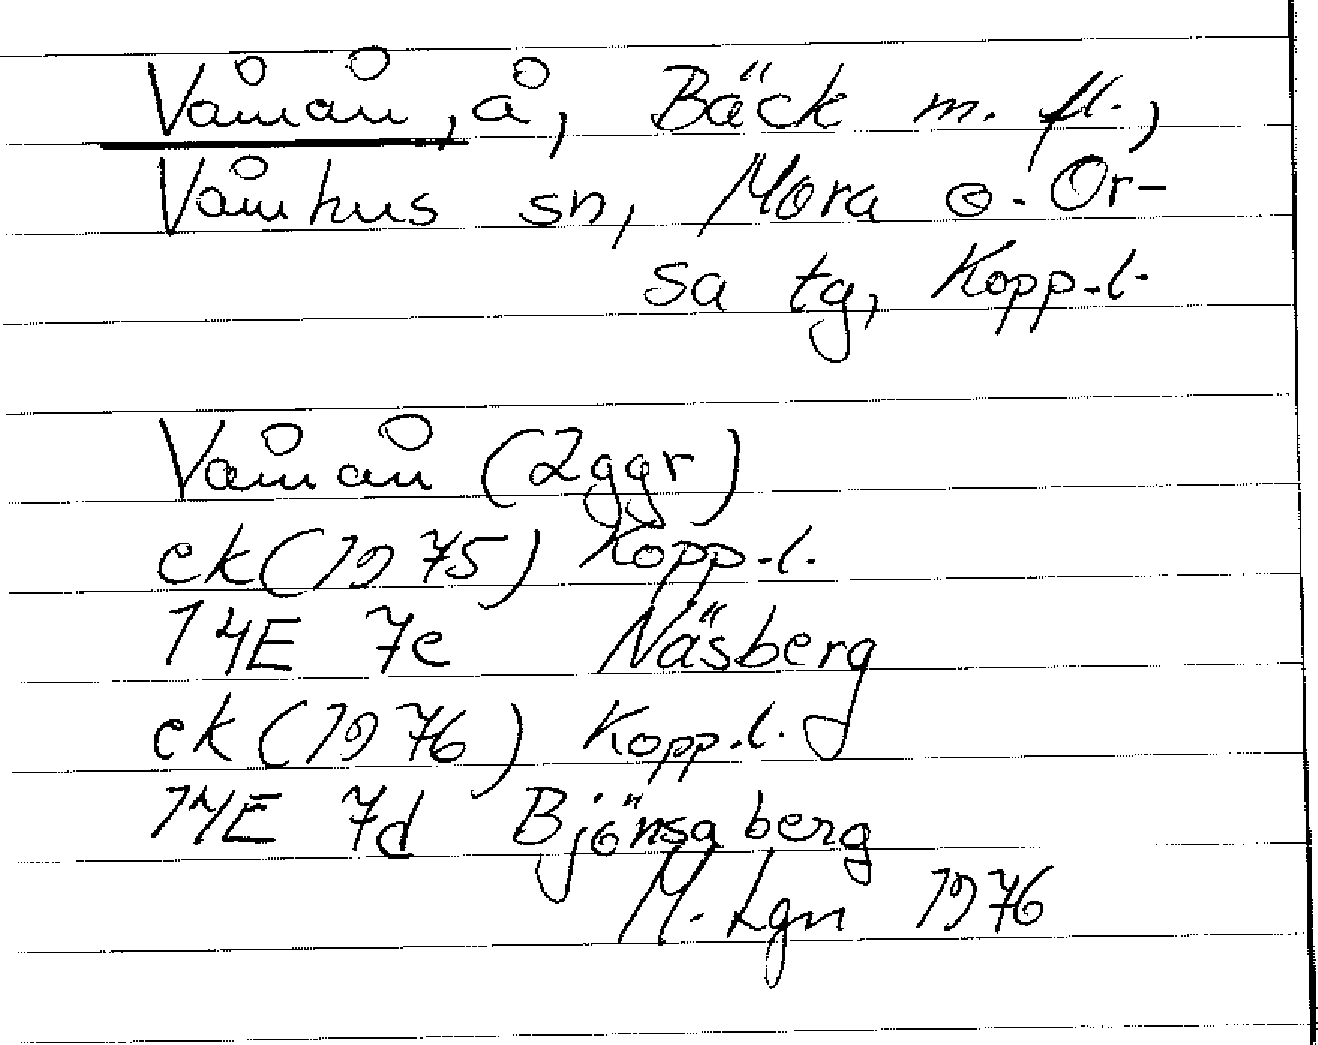 Våmån, å, Bäck m. fl.,
Våmhus sn, Mora o. Or-
sa tg, Kopp.l.
Våmån (2ggr)
ek (1975) Kopp.l.
14E 7e Näsberg
ek (1976) Kopp.l.
14E 7d Björnsaberg
M. Lgn 1976